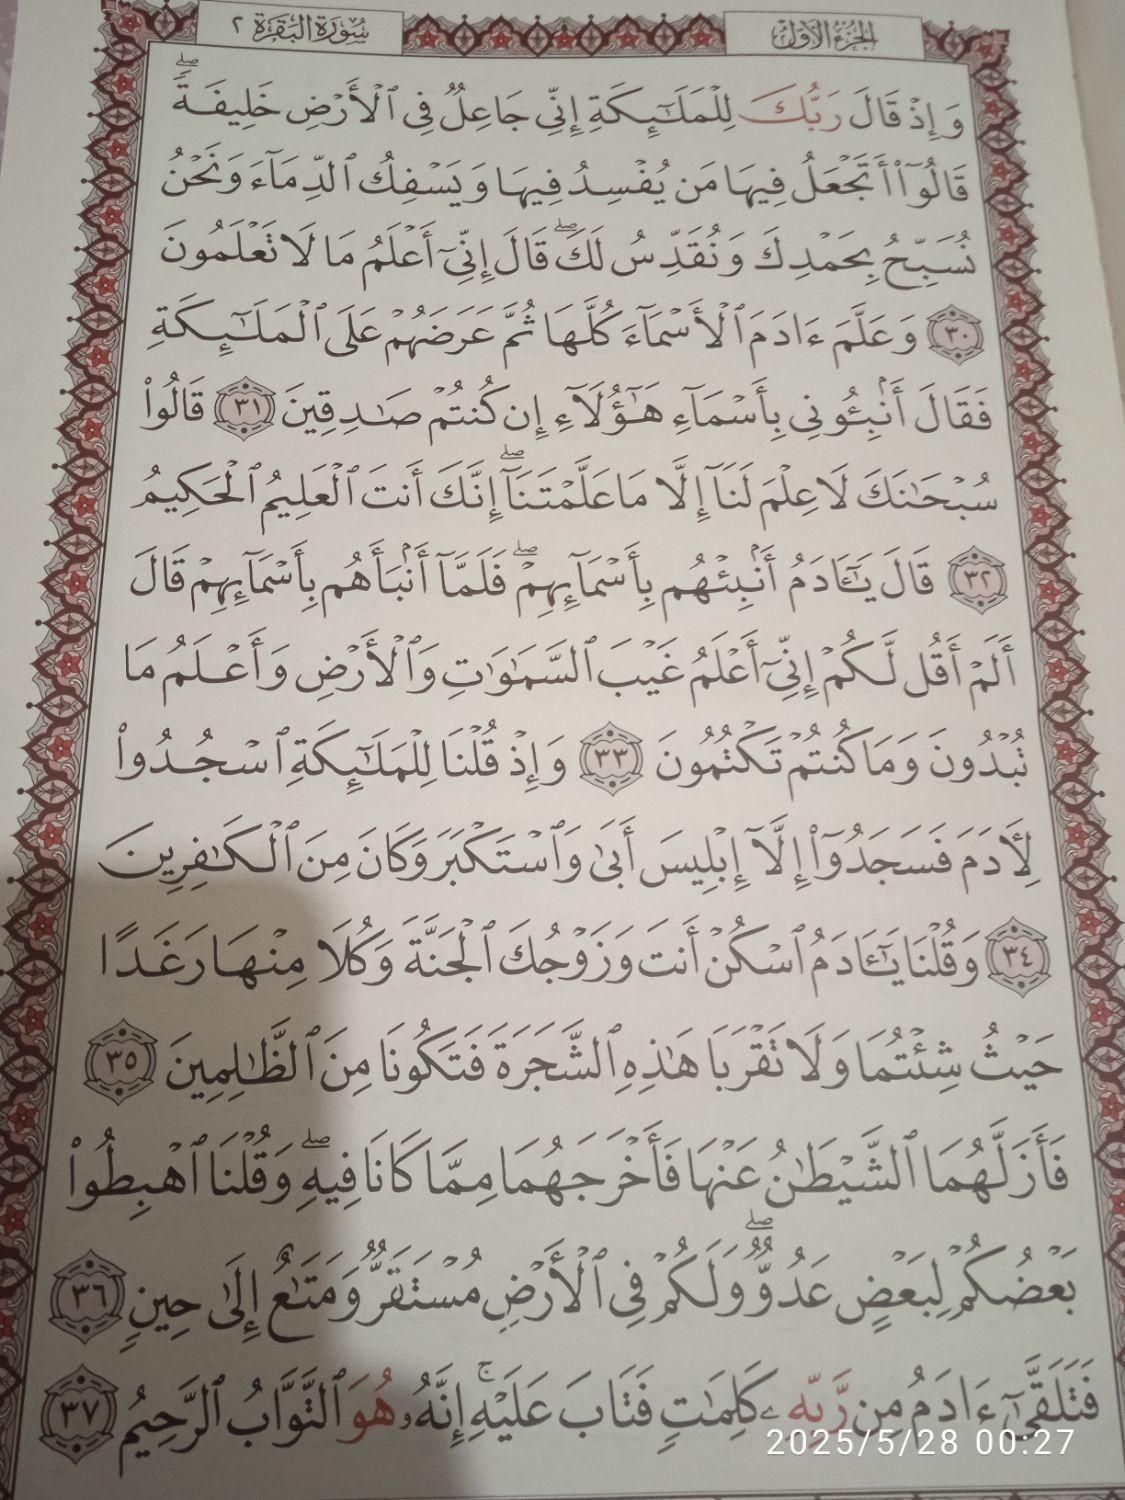 الجزء الأول
سورة البقرة ٢
وَإِذْ قَالَ رَبُّكَ لِلْمَلَٰٓئِكَةِ إِنِّى جَاعِلٌ فِى ٱلْأَرْضِ خَلِيفَةً ۖ
قَالُوٓا۟ أَتَجْعَلُ فِيهَا مَن يُفْسِدُ فِيهَا وَيَسْفِكُ ٱلدِّمَآءَ وَنَحْنُ
نُسَبِّحُ بِحَمْدِكَ وَنُقَدِّسُ لَكَ ۖ قَالَ إِنِّىٓ أَعْلَمُ مَا لَا تَعْلَمُونَ
٣٠ وَعَلَّمَ ءَادَمَ ٱلْأَسْمَآءَ كُلَّهَا ثُمَّ عَرَضَهُمْ عَلَى ٱلْمَلَٰٓئِكَةِ
فَقَالَ أَنۢبِـُٔونِى بِأَسْمَآءِ هَٰٓؤُلَآءِ إِن كُنتُمْ صَٰدِقِينَ ٣١ قَالُوا۟
سُبْحَٰنَكَ لَا عِلْمَ لَنَآ إِلَّا مَا عَلَّمْتَنَآ ۖ إِنَّكَ أَنتَ ٱلْعَلِيمُ ٱلْحَكِيمُ
٣٢ قَالَ يَٰٓـَٔادَمُ أَنۢبِئْهُم بِأَسْمَآئِهِمْ ۖ فَلَمَّآ أَنۢبَأَهُم بِأَسْمَآئِهِمْ قَالَ
أَلَمْ أَقُل لَّكُمْ إِنِّىٓ أَعْلَمُ غَيْبَ ٱلسَّمَٰوَٰتِ وَٱلْأَرْضِ وَأَعْلَمُ مَا
تُبْدُونَ وَمَا كُنتُمْ تَكْتُمُونَ ٣٣ وَإِذْ قُلْنَا لِلْمَلَٰٓئِكَةِ ٱسْجُدُوا۟
لِـَٔادَمَ فَسَجَدُوٓا۟ إِلَّآ إِبْلِيسَ أَبَىٰ وَٱسْتَكْبَرَ وَكَانَ مِنَ ٱلْكَٰفِرِينَ
٣٤ وَقُلْنَا يَٰٓـَٔادَمُ ٱسْكُنْ أَنتَ وَزَوْجُكَ ٱلْجَنَّةَ وَكُلَا مِنْهَا رَغَدًا
حَيْثُ شِئْتُمَا وَلَا تَقْرَبَا هَٰذِهِ ٱلشَّجَرَةَ فَتَكُونَا مِنَ ٱلظَّٰلِمِينَ ٣٥
فَأَزَلَّهُمَا ٱلشَّيْطَٰنُ عَنْهَا فَأَخْرَجَهُمَا مِمَّا كَانَا فِيهِ ۖ وَقُلْنَا ٱهْبِطُوا۟
بَعْضُكُمْ لِبَعْضٍ عَدُوٌّ ۖ وَلَكُمْ فِى ٱلْأَرْضِ مُسْتَقَرٌّ وَمَتَٰعٌ إِلَىٰ حِينٍ ٣٦
فَتَلَقَّىٰٓ ءَادَمُ مِن رَّبِّهِۦ كَلِمَٰتٍ فَتَابَ عَلَيْهِ ۚ إِنَّهُۥ هُوَ ٱلتَّوَّابُ ٱلرَّحِيمُ ٣٧
2025/5/28 00:27